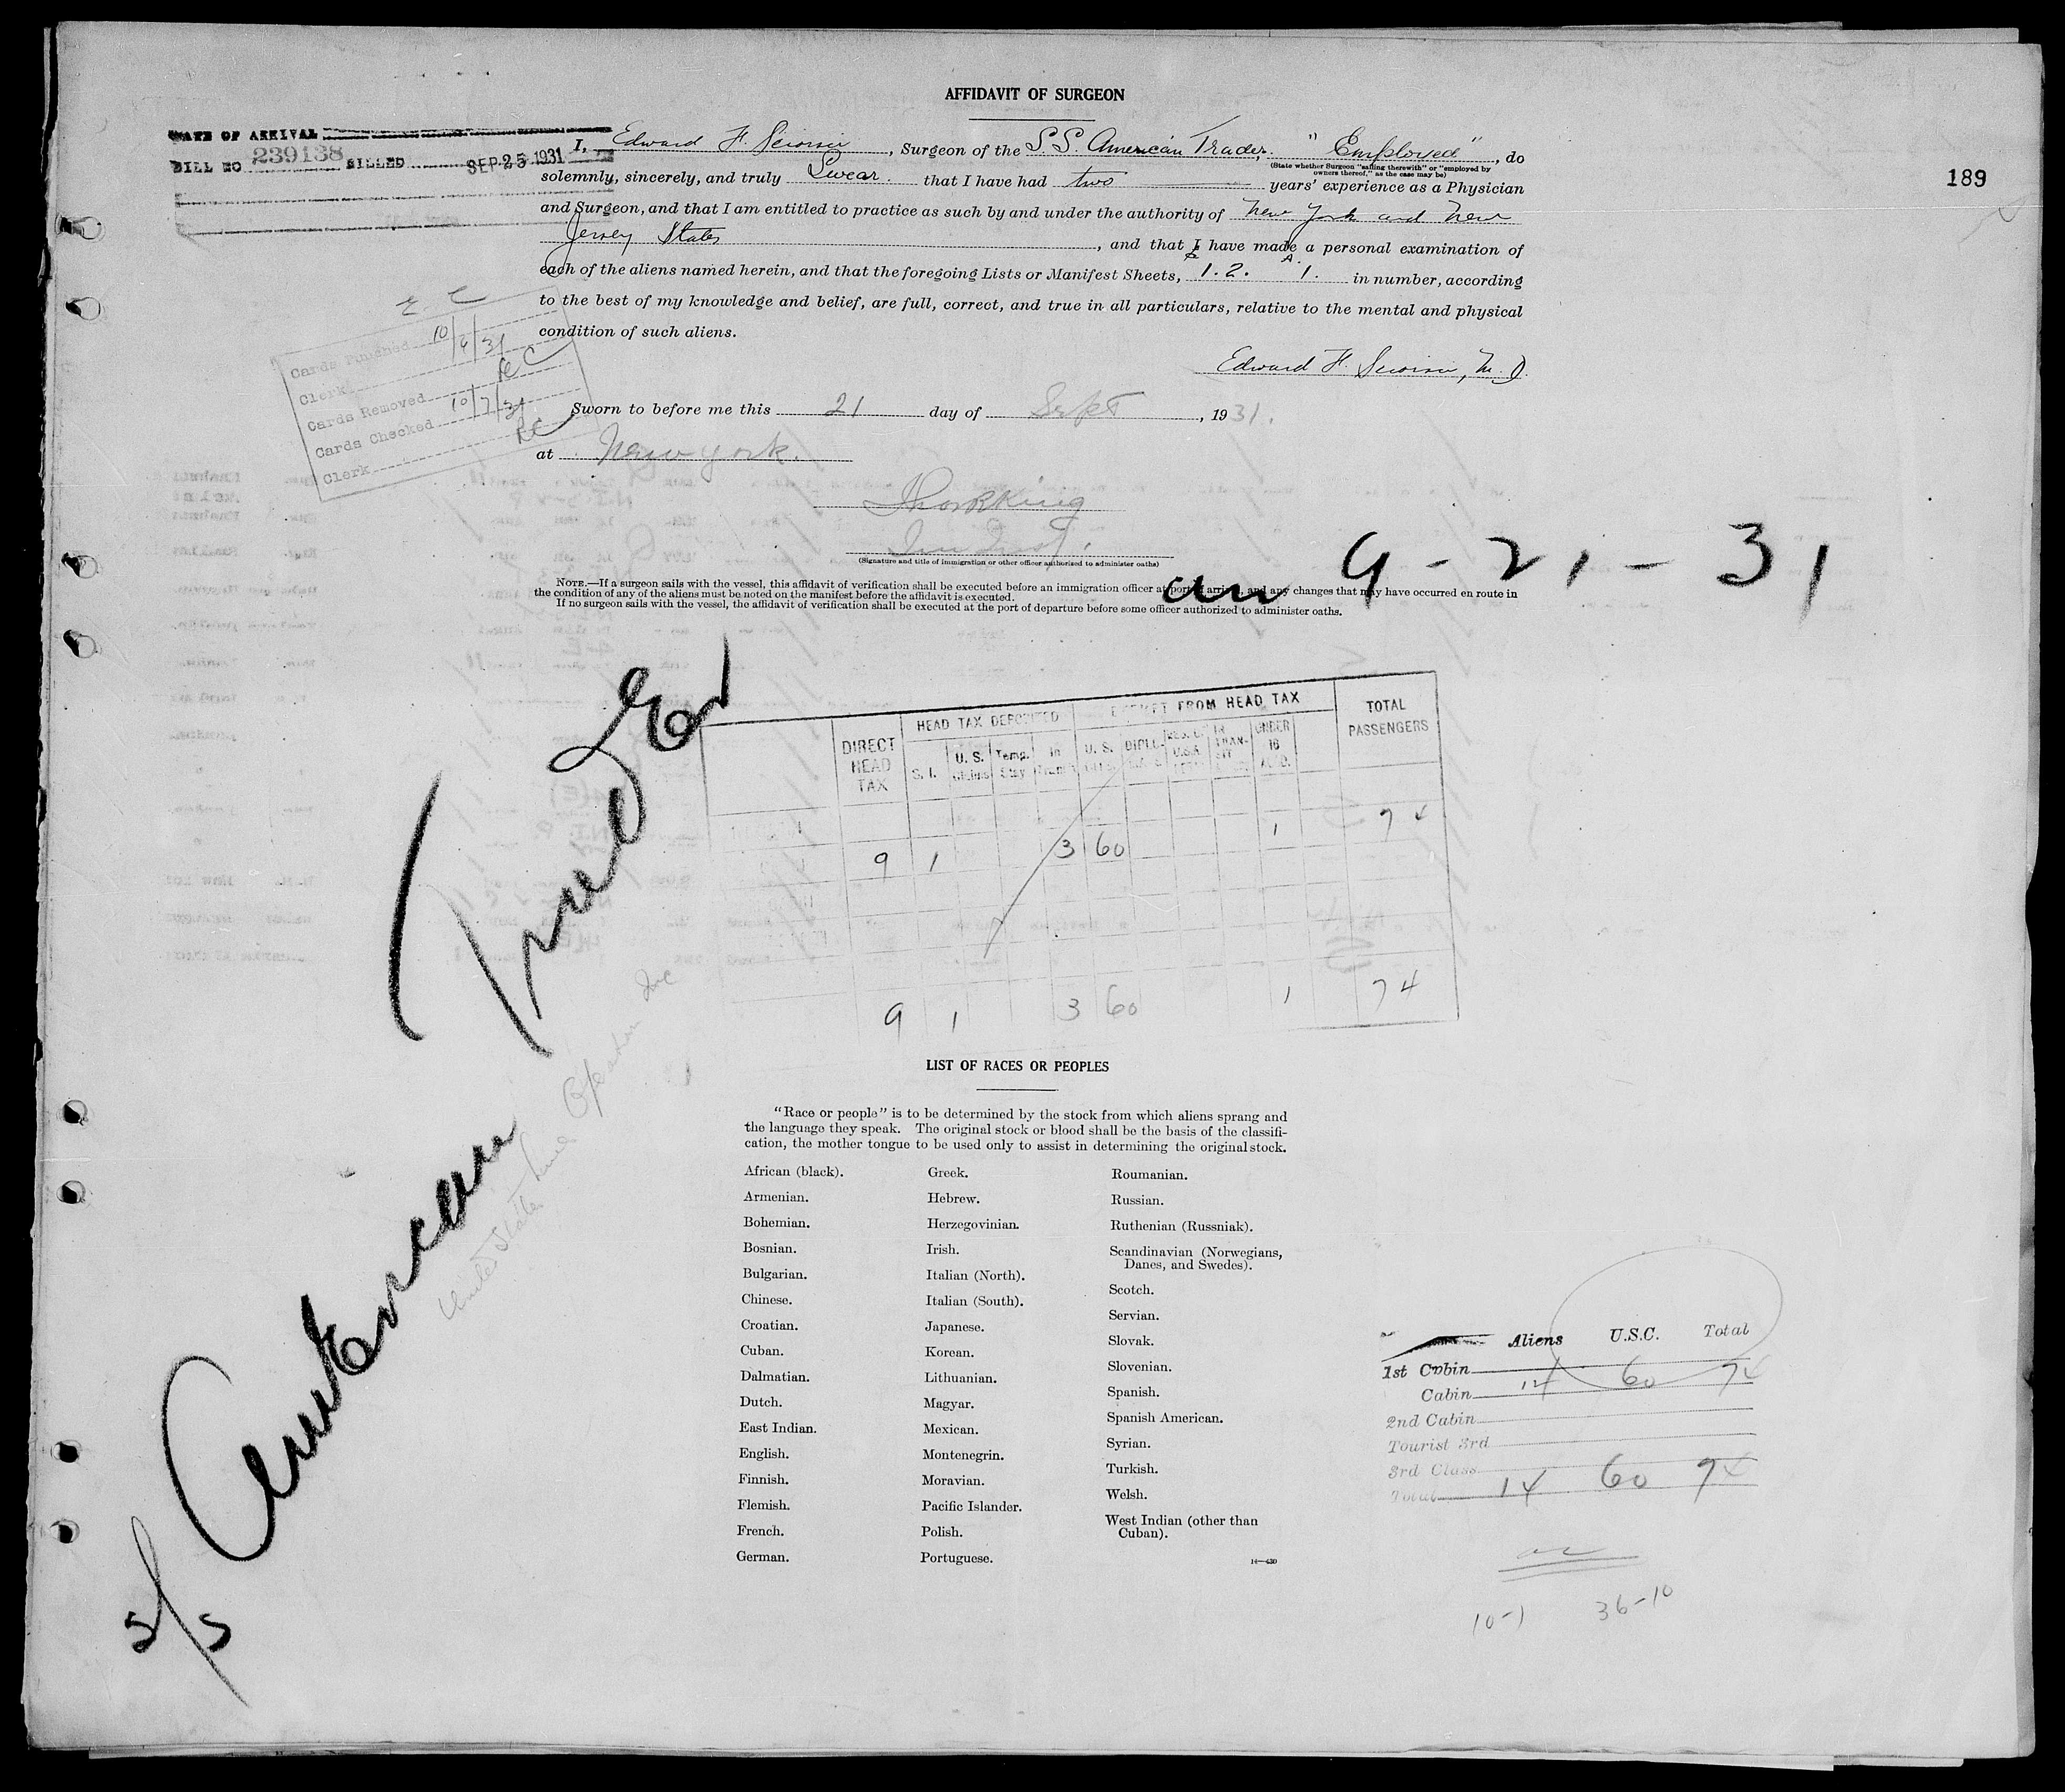 AFFIDAVIT OF SURGEON
189
DATE OF ARRIVAL
BILL NO 239138 BILLED SEP 25 1931
I, Edward F. , Surgeon of the S.S. American Trader, "Employed", do
(State whether Surgeon "sailing therewith" or "employed by
owners thereof," as the case may be)
solemnly, sincerely, and truly Swear. that I have had two years' experience as a Physician
and Surgeon, and that I am entitled to practice as such by and under the authority of New York and New
Jersey States, and that I have made a personal examination of
each of the aliens named herein, and that the foregoing Lists or Manifest Sheets, 1. 2. A. 1. in number, according
to the best of my knowledge and belief, are full, correct, and true in all particulars, relative to the mental and physical
condition of such aliens.
Edward F. , M.D.
Cards Finished 10/6/31
Clerk
Cards Removed
Cards Checked 10/7/31
Clerk
Sworn to before me this 21 day of Sept, 1931.
at New York.
(Signature and title of immigration or other officer authorized to administer oaths)
arr 9-21-31
NOTE.—If a surgeon sails with the vessel, this affidavit of verification shall be executed before an immigration officer at port of arrival, and any changes that may have occurred en route in
the condition of any of the aliens must be noted on the manifest before the affidavit is executed.
If no surgeon sails with the vessel, the affidavit of verification shall be executed at the port of departure before some officer authorized to administer oaths.
S/S American Trader
United States Line Operation Inc
DIRECT HEAD TAX
HEAD TAX DEPOSITED
EXEMPT FROM HEAD TAX
TOTAL PASSENGERS
S. I. U. S. Citizens Temp. Stay In Transit U. S. UNDER 16
9 1 3 60 1 74
9 1 3 60 1 74
LIST OF RACES OR PEOPLES
"Race or people" is to be determined by the stock from which aliens sprang and
the language they speak. The original stock or blood shall be the basis of the classifi-
cation, the mother tongue to be used only to assist in determining the original stock.
African (black).
Armenian.
Bohemian.
Bosnian.
Bulgarian.
Chinese.
Croatian.
Cuban.
Dalmatian.
Dutch.
East Indian.
English.
Finnish.
Flemish.
French.
German.
Greek.
Hebrew.
Herzegovinian.
Irish.
Italian (North).
Italian (South).
Japanese.
Korean.
Lithuanian.
Magyar.
Mexican.
Montenegrin.
Moravian.
Pacific Islander.
Polish.
Portuguese.
Roumanian.
Russian.
Ruthenian (Russniak).
Scandinavian (Norwegians,
Danes, and Swedes).
Scotch.
Servian.
Slovak.
Slovenian.
Spanish.
Spanish American.
Syrian.
Turkish.
Welsh.
West Indian (other than
Cuban).
Aliens U.S.C. Total
1st Cabin
Cabin 14 60 74
2nd Cabin
Tourist 3rd
3rd Class
Total 14 60 74
10-1 36-10